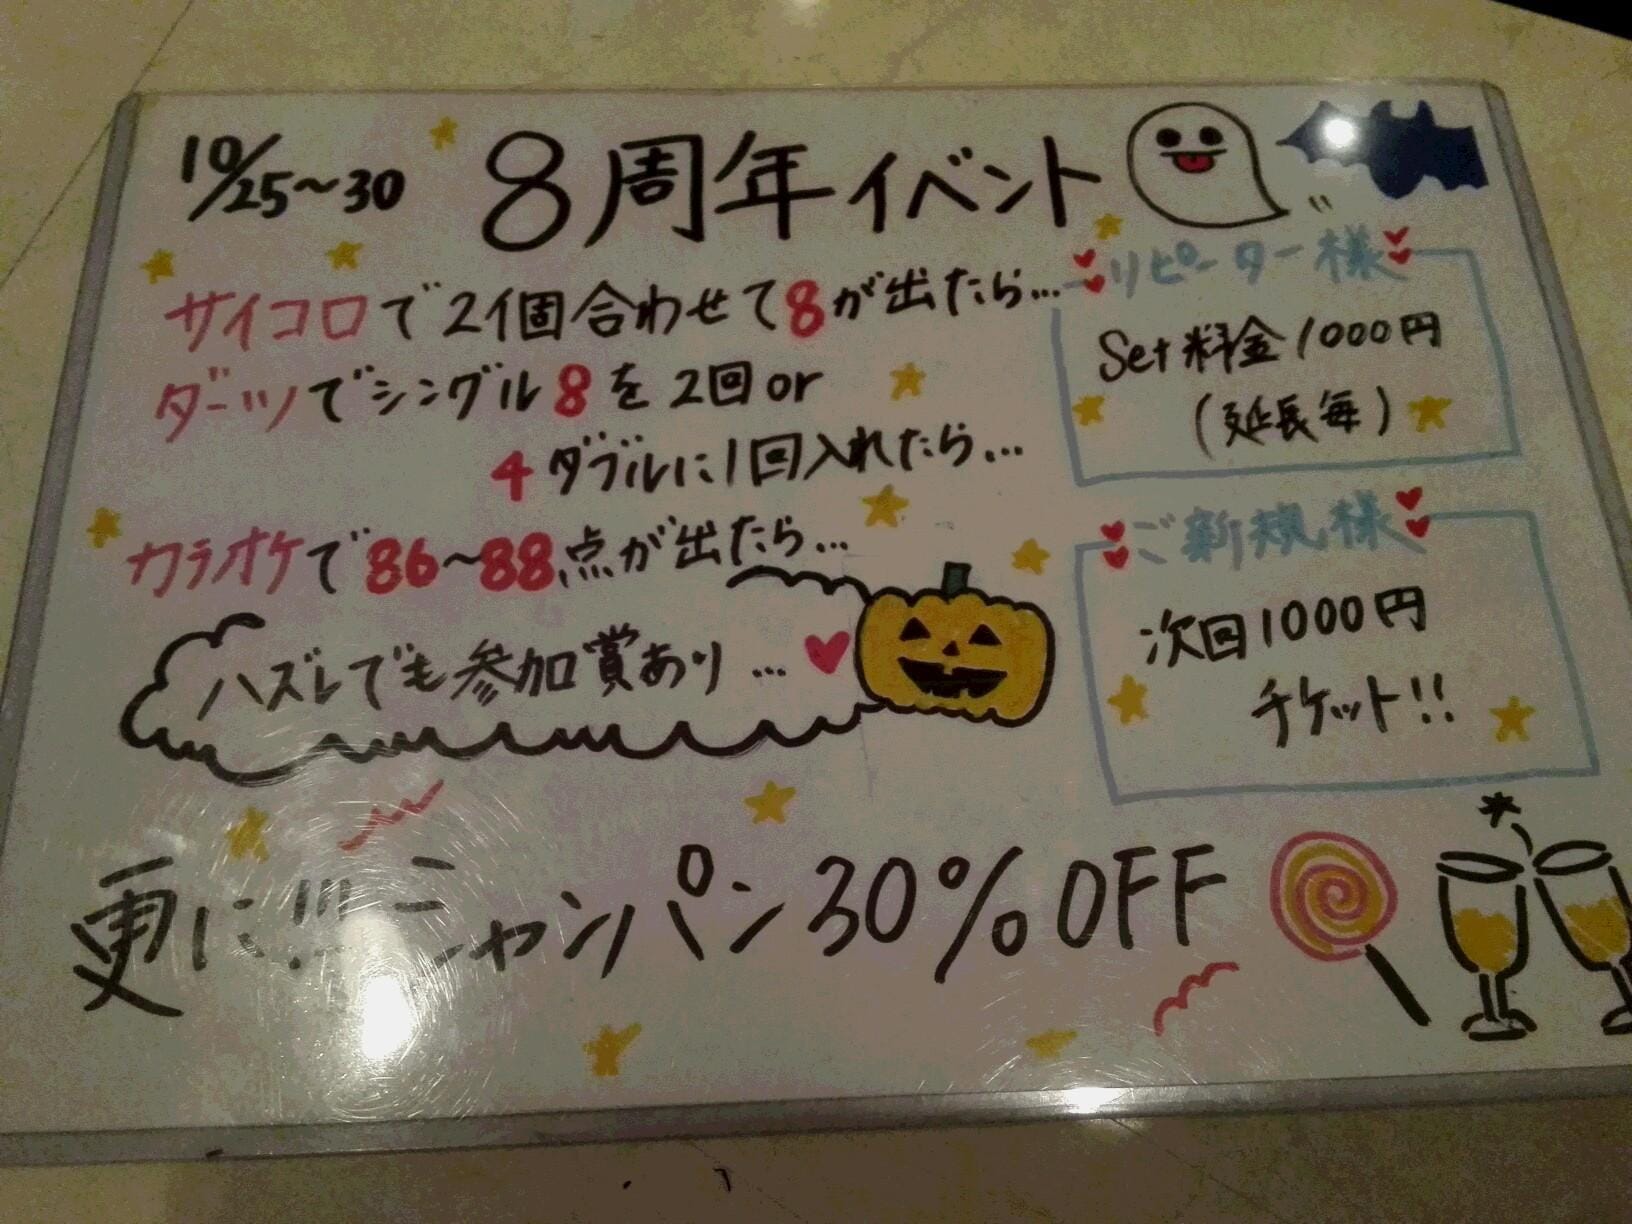 10/25～30 8周年イベント
サイコロで2個合わせて8が出たら…
ダーツでシングル8を2回or
4ダブルに1回入れたら…
カラオケで86～88点が出たら…
ハズレでも参加賞あり…
リピーター様
Set料金1000円
(延長毎)
ご新規様
次回1000円
チケット!!
更に!!!シャンパン30%OFF